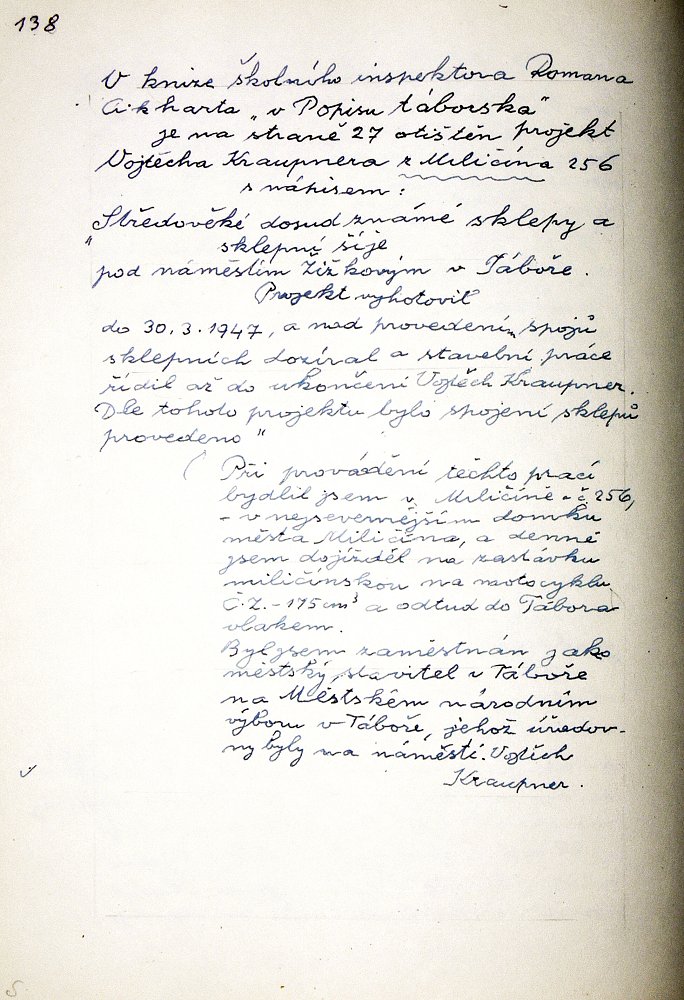 138
V knize školního inspektora Romana
A. k harta „v Popisu táborska"
je na straně 27 otištěn projekt
Vojtěcha Kraupnera z Miličína 256
s nápisem:
„Středověké dosud známé sklepy a
sklepní šíje
pod náměstím Žižkovým v Táboře.
Projekt vyhotovil
do 30.3.1947, a nad provedením spojů
sklepních dozíral a stavební práce
řídil až do ukončení Vojtěch Kraupner.
Dle tohoto projektu bylo spojení sklepů
provedeno"
( Při provádění těchto prací
bydlil jsem v Miličíně - č 256,
- v nejsevernějším domku
města Miličína, a denně
jsem dojížděl na zastávku
miličínskou na motocyklu
Č.Z. - 175 cm³ a odtud do Tábora
vlakem.
Byl jsem zaměstnán jako
městský stavitel v Táboře
na Městském národním
výboru v Táboře, jehož úřadov-
ny byly na náměstí. Vojtěch
Kraupner.